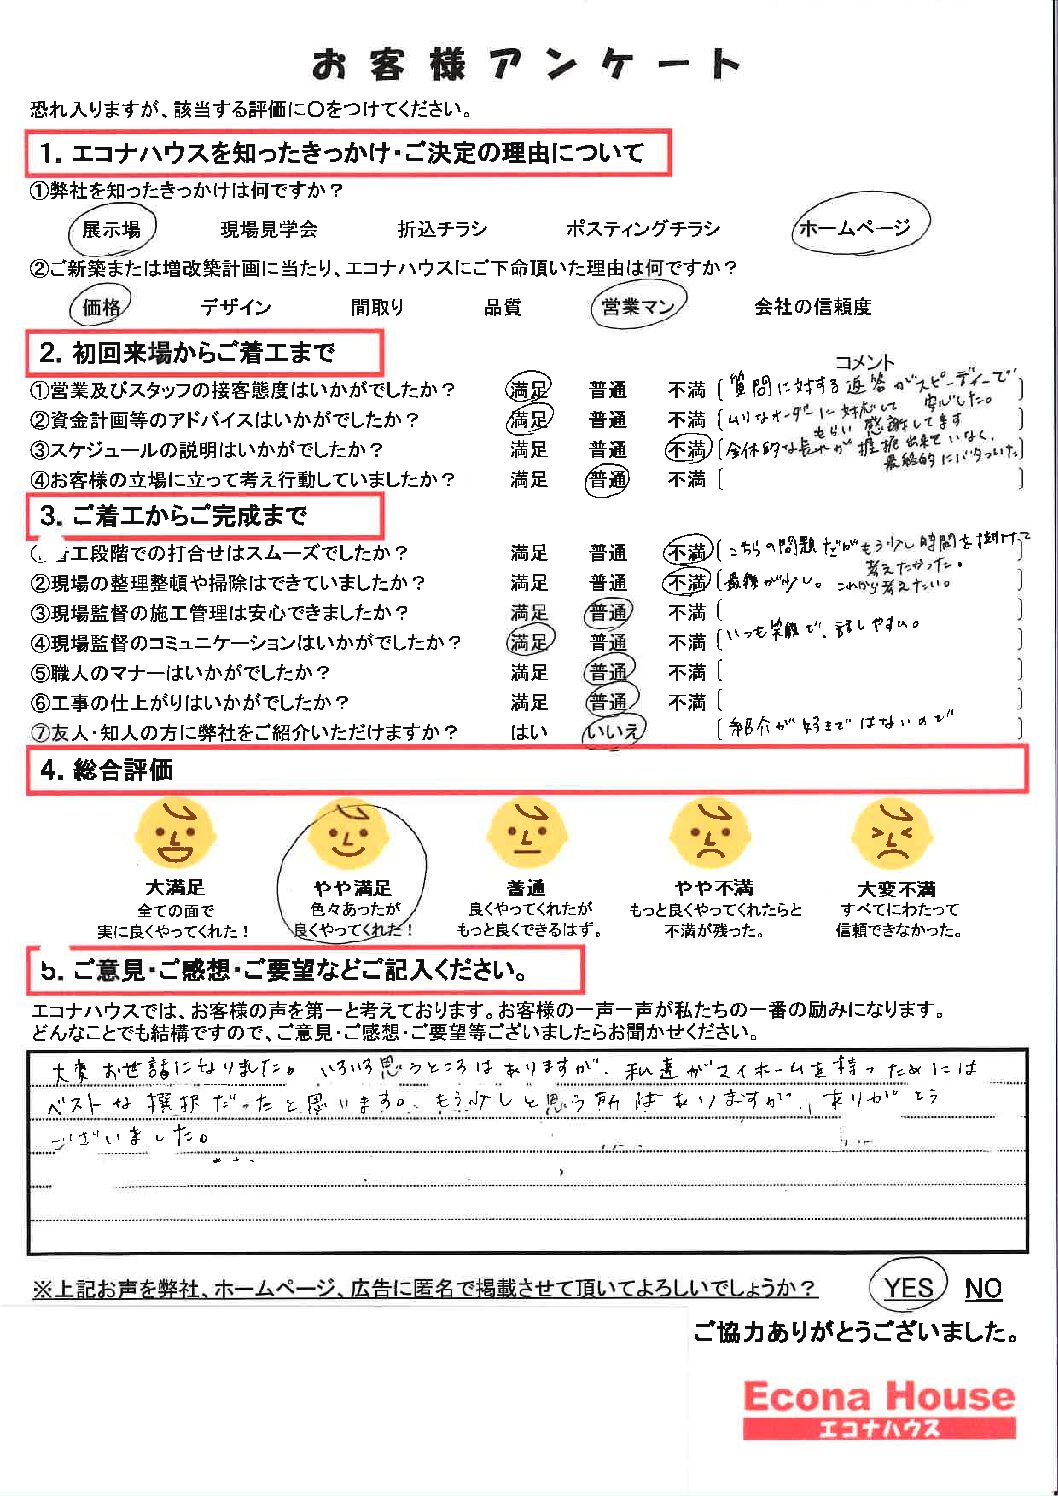 お客様アンケート
恐れ入りますが、該当する評価に〇をつけてください。
1. エコナハウスを知ったきっかけ・ご決定の理由について
①弊社を知ったきっかけは何ですか？
展示場 現場見学会 折込チラシ ポスティングチラシ ホームページ
②ご新築または増改築計画に当たり、エコナハウスにご下命頂いた理由は何ですか？
価格 デザイン 間取り 品質 営業マン 会社の信頼度
2. 初回来場からご着工まで
コメント
①営業及びスタッフの接客態度はいかがでしたか？ 満足 普通 不満 [質問に対する返答がスピーディーで]
安心した。
②資金計画等のアドバイスはいかがでしたか？ 満足 普通 不満 [ムリなオーダーに対応して
もらい感謝してます
③スケジュールの説明はいかがでしたか？ 満足 普通 不満 [全体的な流れが把握出来ていなく、
最終的にバタついた]
④お客様の立場に立って考え行動していましたか？ 満足 普通 不満 [ ]
3. ご着工からご完成まで
工段階での打合せはスムーズでしたか？ 満足 普通 不満 [こちらの問題だがもう少し時間を掛けて
考えたかった。
②現場の整理整頓や掃除はできていましたか？ 満足 普通 不満 [最後が少し。これから考えたい。
③現場監督の施工管理は安心できましたか？ 満足 普通 不満 [ ]
④現場監督のコミュニケーションはいかがでしたか？ 満足 普通 不満 [いつも笑顔で、話しやすい。]
⑤職人のマナーはいかがでしたか？ 満足 普通 不満 [ ]
⑥工事の仕上がりはいかがでしたか？ 満足 普通 不満 [ ]
⑦友人・知人の方に弊社をご紹介いただけますか？ はい いいえ [紹介が好きではないので]
4. 総合評価
大満足 やや満足 普通 やや不満 大変不満
全ての面で 色々あったが 良くやってくれたが もっと良くやってくれたらと すべてにわたって
実に良くやってくれた！ 良くやってくれた！ もっと良くできるはず。 不満が残った。 信頼できなかった。
5. ご意見・ご感想・ご要望などご記入ください。
エコナハウスでは、お客様の声を第一と考えております。お客様の一声一声が私たちの一番の励みになります。
どんなことでも結構ですので、ご意見・ご感想・ご要望等ございましたらお聞かせください。
大変お世話になりました。いろいろ思うところはありますが、私達がマイホームを持つためには
ベストな選択だったと思います。もう少しと思う所はありますが、ありがとう
ございました。
※上記お声を弊社、ホームページ、広告に匿名で掲載させて頂いてよろしいでしょうか？ YES NO
ご協力ありがとうございました。
Econa House
エコナハウス